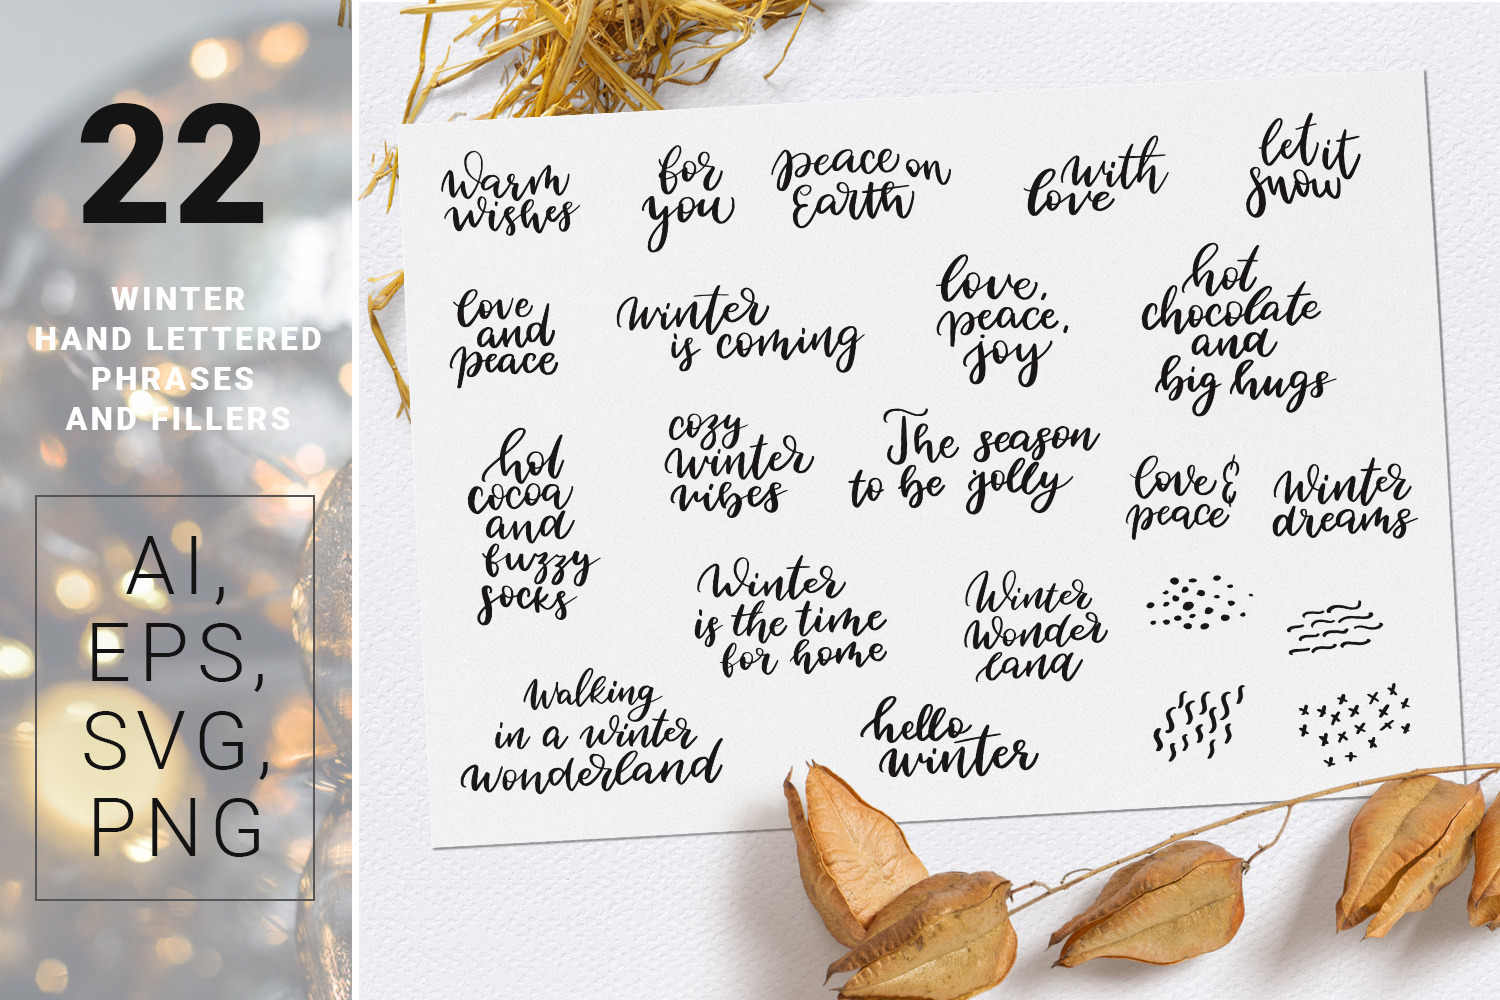 22
WINTER
HAND LETTERED
PHRASES
AND FILLERS
AI,
EPS,
SVG,
PNG
warm
wishes
for
you
peace on
Earth
with
love
let it
snow
love
and
peace
winter
is coming
love,
peace,
joy
hot
chocolate
and
big hugs
hot
cocoa
and
fuzzy
socks
cozy
winter
vibes
The season
to be jolly
love &
peace
Winter
dreams
Winter
is the time
for home
Winter
Wonder
land
Walking
in a winter
wonderland
hello
winter